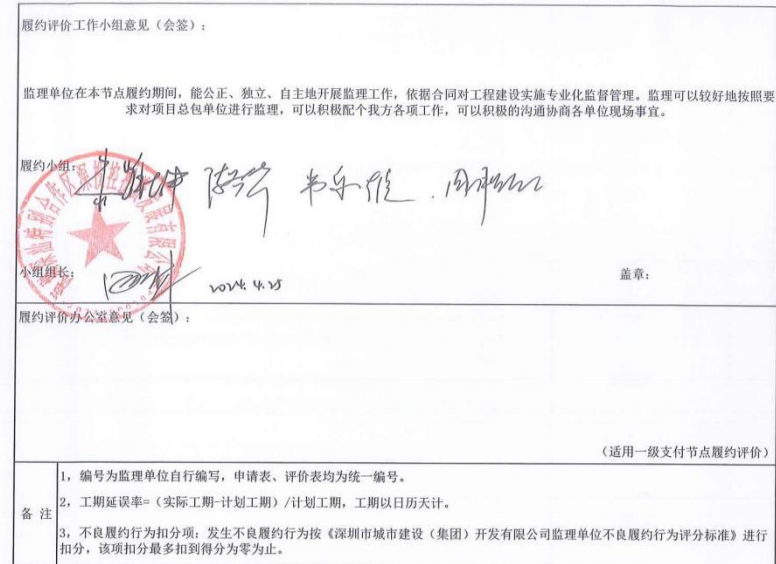 履约评价工作小组意见（会签）：
监理单位在本节点履约期间，能公正、独立、自主地开展监理工作，依据合同对工程建设实施专业化监督管理。监理可以较好地按照要
求对项目总包单位进行监理，可以积极配个我方各项工作，可以积极的沟通协商各单位现场事宜。
履约小组：
小组组长：
2024.4.25
盖章：
履约评价办公室意见（会签）：
（适用一级支付节点履约评价）
备 注
1，编号为监理单位自行编写，申请表、评价表均为统一编号。
2，工期延误率=（实际工期-计划工期）/计划工期，工期以日历天计。
3，不良履约行为扣分项：发生不良履约行为按《深圳市城市建设（集团）开发有限公司监理单位不良履约行为评分标准》进行
扣分，该项扣分最多扣到得分为零为止。